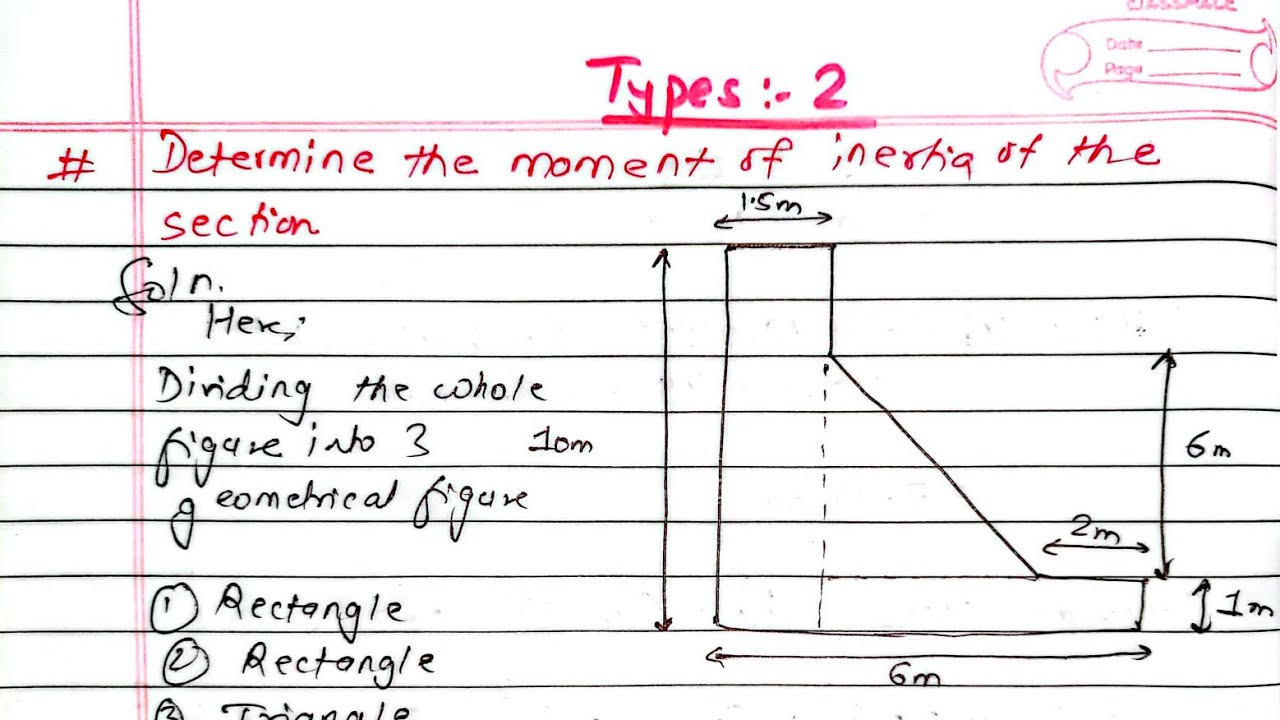 CLASSMATE
Date
Page
Types :- 2
# Determine the moment of inertia of the
section
1.5m
Soln.
Here,
Dividing the whole
figure into 3
10m
6m
geometrical figure
2m
① Rectangle
1m
② Rectangle
6m
③ Triangle